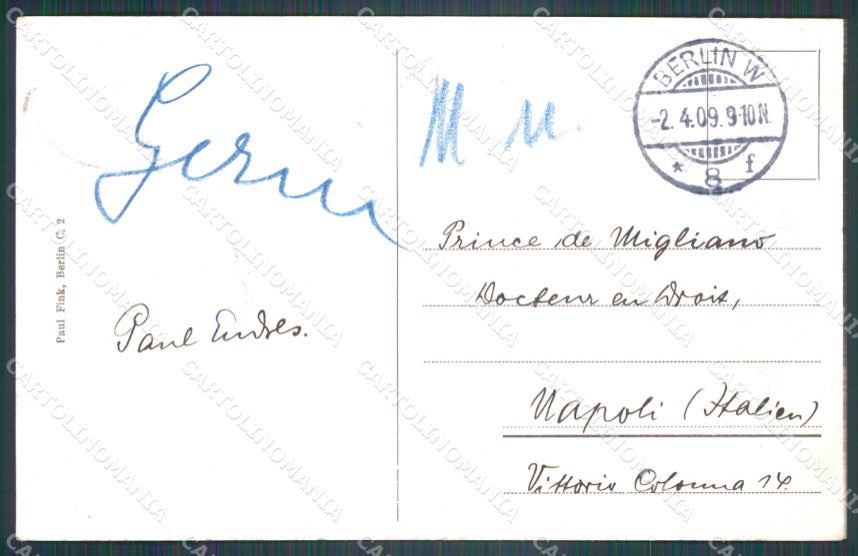 BERLIN W
-2.4.09.9-10N.
* 8 f
M u.
Prince de Migliano
Docteur en Droit,
Napoli (Italien)
Vittorio Colonna 14.
Paul Endres.
Paul Fink, Berlin C. 2
CARTOLINOMANIA